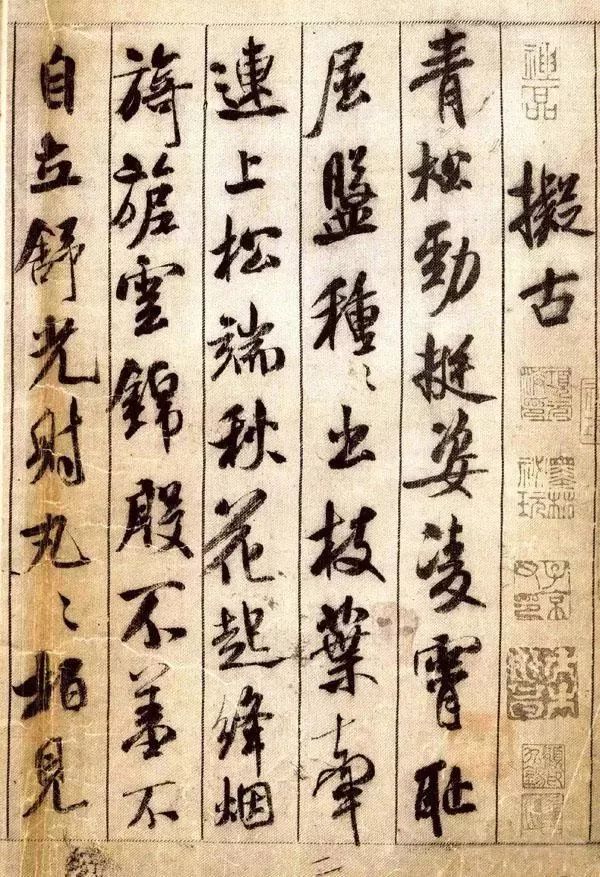 神品
擬古
墨林秘玩
青松勁挺姿凌霄恥
屈盤種〻出枝葉牽
連上松端秋花起絳烟
旖旎雲錦殷不羞不
自立舒光射丸〻柏見
二